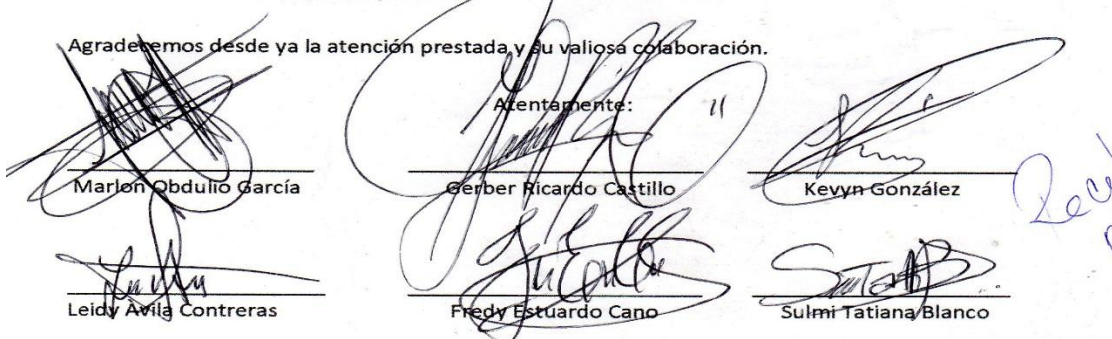 Agradecemos desde ya la atención prestada y su valiosa colaboración.
Atentamente:
Marlon Obdulio García
Gerber Ricardo Castillo
Kevyn González
Leidy Avila Contreras
Fredy Estuardo Cano
Sulmi Tatiana Blanco